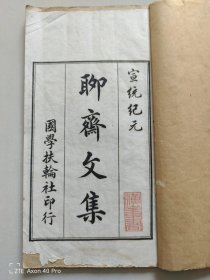 宣統紀元
聊齋文集
國學扶輪社印行
ZTE Axon 40 Pro